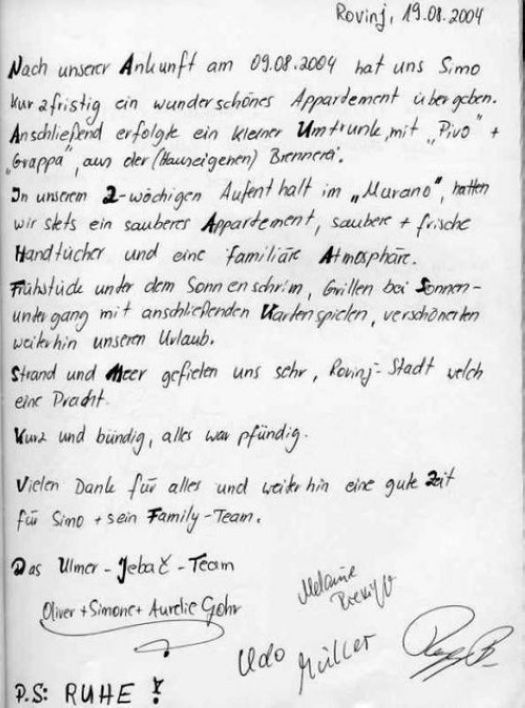 Rovinj, 19.08.2004
Nach unserer Ankunft am 09.08.2004 hat uns Simo
kurzfristig ein wunderschönes Appartement übergeben.
Anschließend erfolgte ein kleiner Umtrunk, mit „Pivo" +
„Grappa", aus der (Hauseigenen) Brennerei.
In unserem 2-wöchigen Aufenthalt im „Murano", hatten
wir stets ein sauberes Appartement, saubere + frische
Handtücher und eine familiäre Atmosphäre.
Frühstück unter dem Sonnenschrim, Grillen bei Sonnen-
untergang mit anschließenden Kartenspielen, verschönerten
weiterhin unseren Urlaub.
Strand und Meer gefielen uns sehr, Rovinj-Stadt welch
eine Pracht.
Kurz und bündig, alles war pfündig.
Vielen Dank für alles und weiterhin eine gute Zeit
für Simo + sein Family-Team.
Das Ulmer-Jebač-Team
Oliver + Simone + Aurelie Gohr
Melanie
Udo Müller
P.S: RUHE !